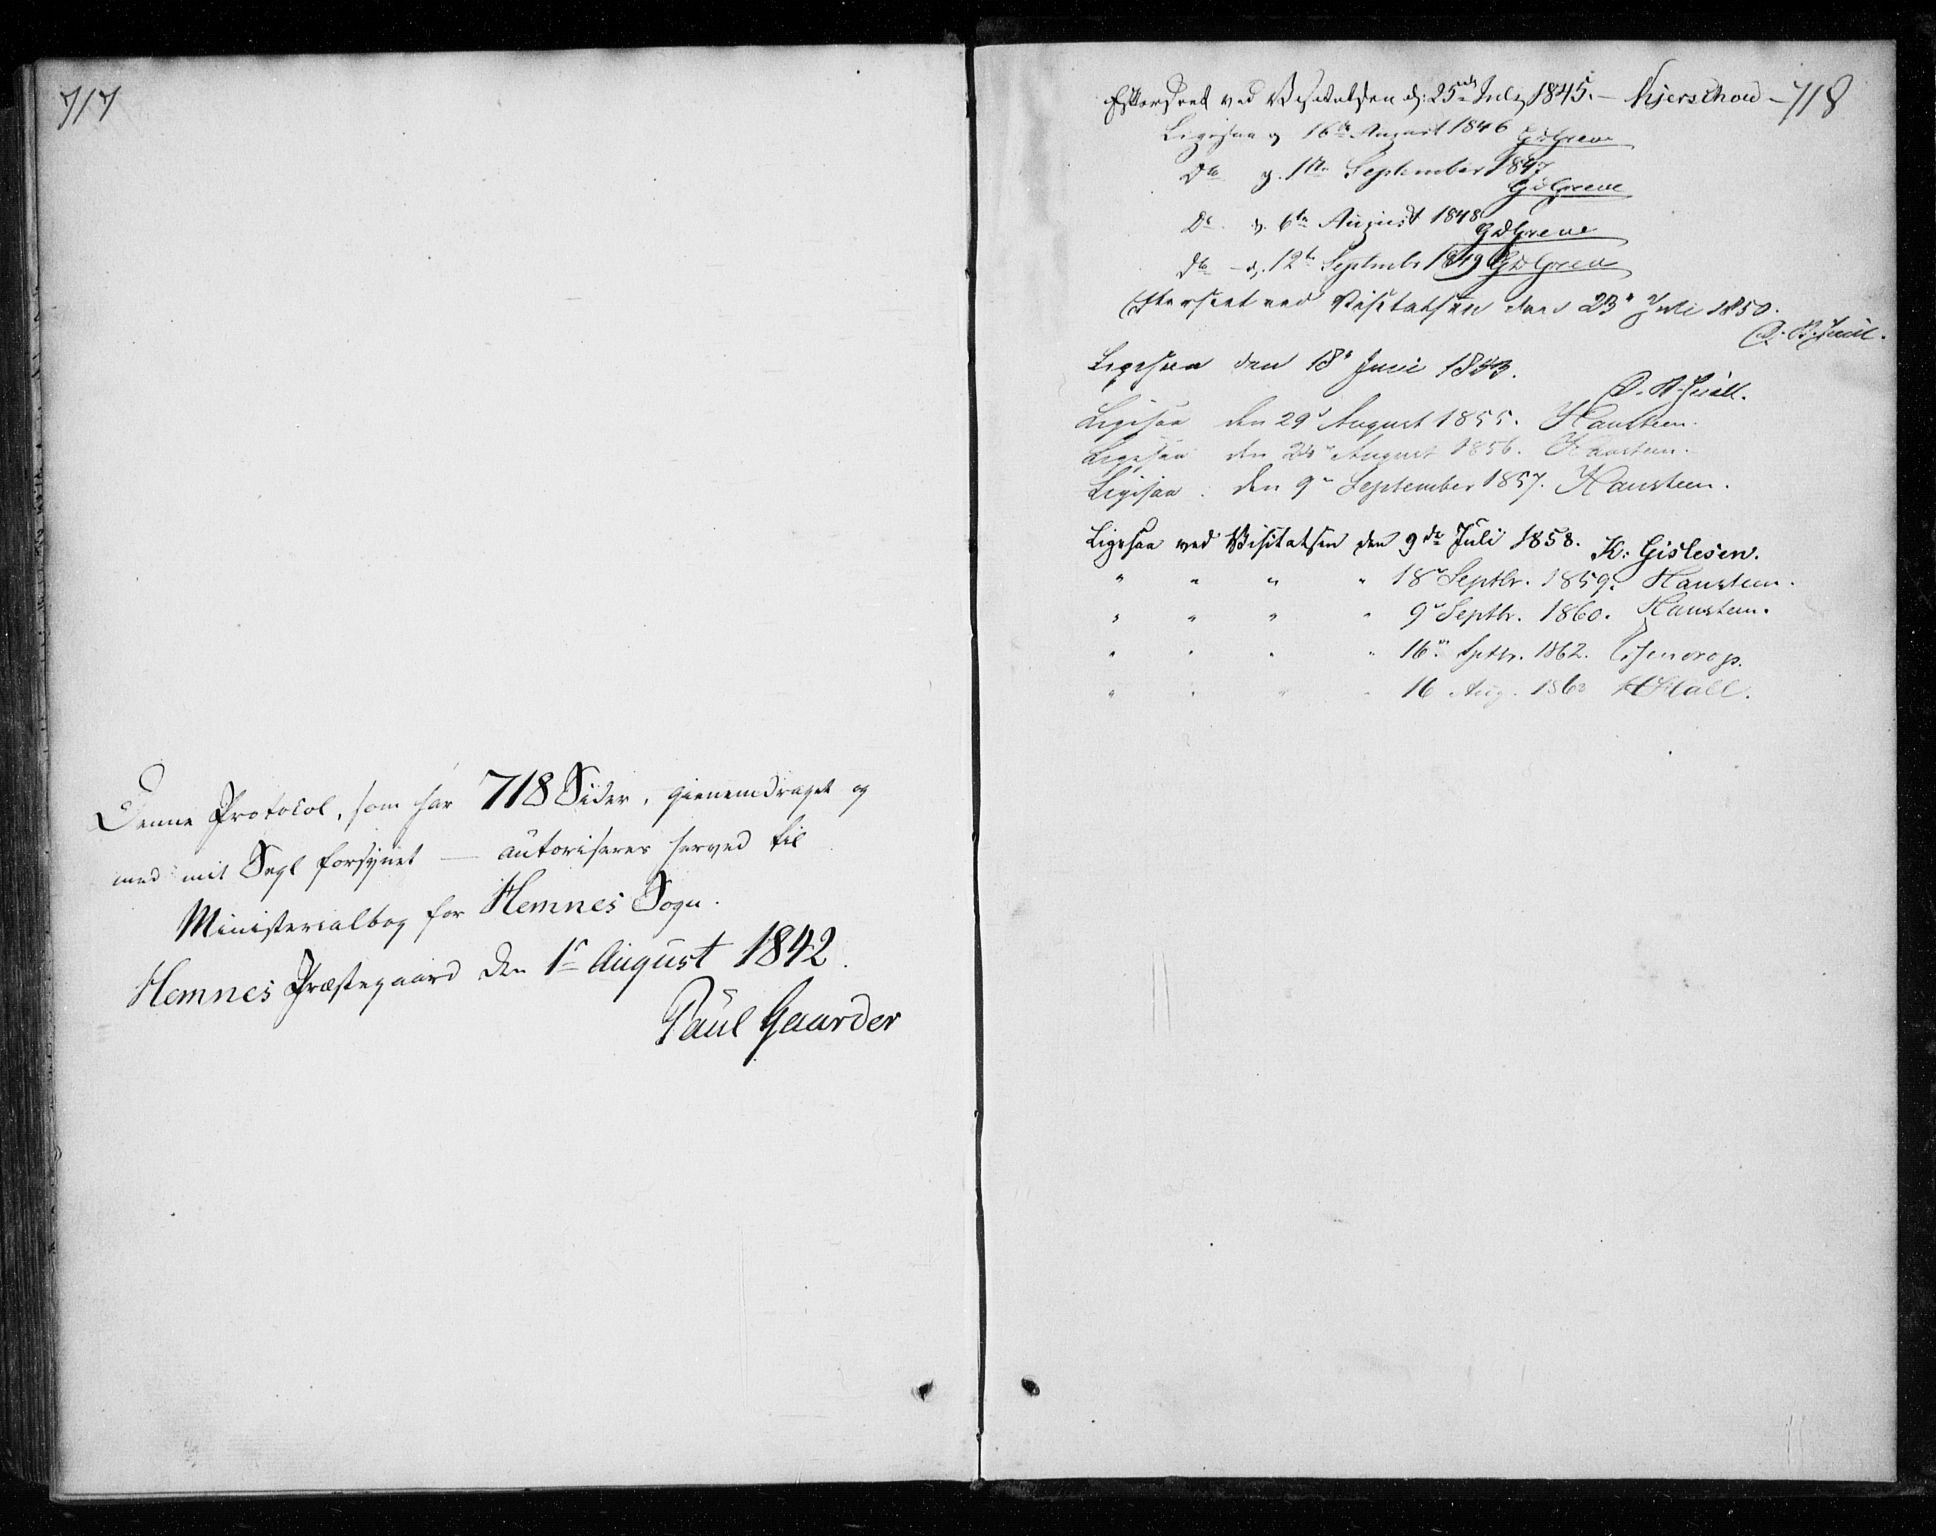 717
Denne Protocol, som har 718 Sider, gienemdraget og
med mit Segl forsynet — autoriseres herved til
Ministerialbog for Hemnes Sogn.
Hemnes Præstegaard den 1ste August 1842.
Paul Gaarder
718
Efterseet ved Visitatsen d: 25de July 1845. — Kjerschow —
Ligesaa d. 16de August 1846 GDGreve
Do d. 1ste September 1847 GDGreve
Do d. 6te August 1848 GDGreve
Do – d. 12te Septembr 1849 GDGreve
Efterseet ved Visitatsen den 23de Juli 1850.
Ligesaa den 18de Juli 1853.
Ligesaa den 29de August 1855. Hansteen.
Ligesaa den August 1856. Hansteen.
Ligesaa den 9de September 1857. Hansteen.
Ligesaa ved Visitatsen den 9de Juli 1858. K: Gislesen.
" " " " 18de Septbr. 1859. Hansteen.
" " " " 9de Septbr. 1860. Hansteen.
" " " " 16de Septbr. 1862.
" " " " 16 Aug. 1863 Hall.